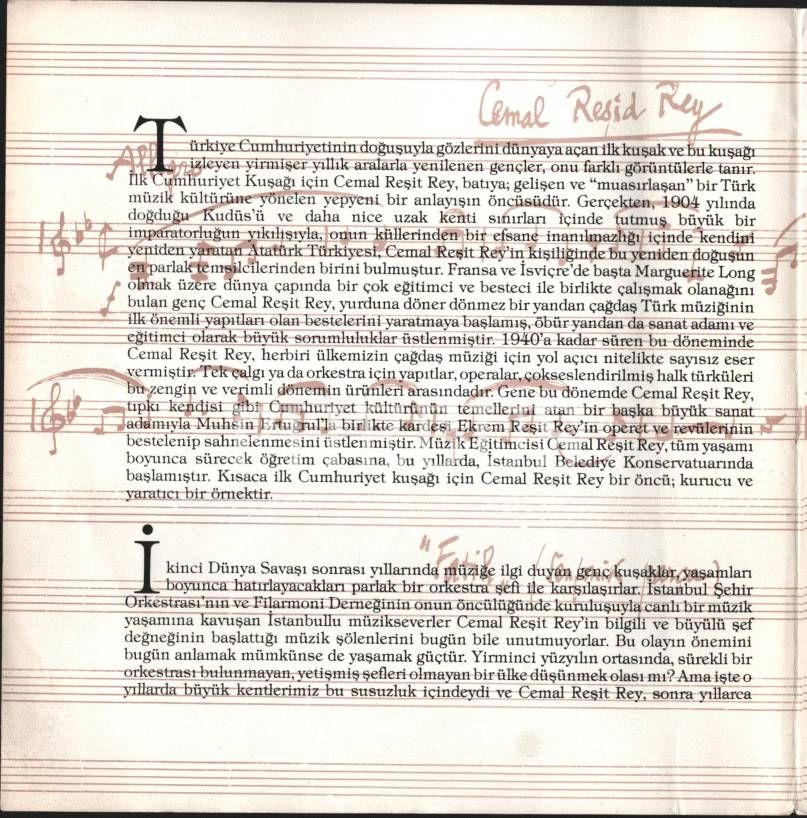 Cemal Reşid Rey
Türkiye Cumhuriyetinin doğuşuyla gözlerini dünyaya açan ilk kuşak ve bu kuşağı
Allegro
izleyen yirmişer yıllık aralarla yenilenen gençler, onu farklı görüntülerle tanır.
İlk Cumhuriyet Kuşağı için Cemal Reşit Rey, batıya; gelişen ve “muasırlaşan” bir Türk
müzik kültürüne yönelen yepyeni bir anlayışın öncüsüdür. Gerçekten, 1904 yılında
doğduğu Kudüs’ü ve daha nice uzak kenti sınırları içinde tutmuş büyük bir
imparatorluğun yıkılışıyla, onun küllerinden bir efsane inanılmazlığı içinde kendini
yeniden yaratan Atatürk Türkiyesi, Cemal Reşit Rey’in kişiliğinde bu yeniden doğuşun
en parlak temsilcilerinden birini bulmuştur. Fransa ve İsviçre’de başta Marguerite Long
olmak üzere dünya çapında bir çok eğitimci ve besteci ile birlikte çalışmak olanağını
f
bulan genç Cemal Reşit Rey, yurduna döner dönmez bir yandan çağdaş Türk müziğinin
ilk önemli yapıtları olan bestelerini yaratmaya başlamış, öbür yandan da sanat adamı ve
eğitimci olarak büyük sorumluluklar üstlenmiştir. 1940’a kadar süren bu döneminde
Cemal Reşit Rey, herbiri ülkemizin çağdaş müziği için yol açıcı nitelikte sayısız eser
vermiştir. Tek çalgı ya da orkestra için yapıtlar, operalar, çokseslendirilmiş halk türküleri
bu zengin ve verimli dönemin ürünleri arasındadır. Gene bu dönemde Cemal Reşit Rey,
tıpkı kendisi gibi Cumhuriyet kültürünün temellerini atan bir başka büyük sanat
adamıyla Muhsin Ertuğrul’la birlikte kardeşi Ekrem Reşit Rey’in operet ve revülerinin
bestelenip sahnelenmesini üstlenmiştir. Müzik Eğitimcisi Cemal Reşit Rey, tüm yaşamı
boyunca sürecek öğretim çabasına, bu yıllarda, İstanbul Belediye Konservatuarında
başlamıştır. Kısaca ilk Cumhuriyet kuşağı için Cemal Reşit Rey bir öncü; kurucu ve
yaratıcı bir örnektir.
"Fatih"
İkinci Dünya Savaşı sonrası yıllarında müziğe ilgi duyan genç kuşaklar, yaşamları
boyunca hatırlayacakları parlak bir orkestra şefi ile karşılaşırlar. İstanbul Şehir
Orkestrası’nın ve Filarmoni Derneğinin onun öncülüğünde kuruluşuyla canlı bir müzik
yaşamına kavuşan İstanbullu müzikseverler Cemal Reşit Rey’in bilgili ve büyülü şef
değneğinin başlattığı müzik şölenlerini bugün bile unutmuyorlar. Bu olayın önemini
bugün anlamak mümkünse de yaşamak güçtür. Yirminci yüzyılın ortasında, sürekli bir
orkestrası bulunmayan, yetişmiş şefleri olmayan bir ülke düşünmek olası mı? Ama işte o
yıllarda büyük kentlerimiz bu susuzluk içindeydi ve Cemal Reşit Rey, sonra yıllarca